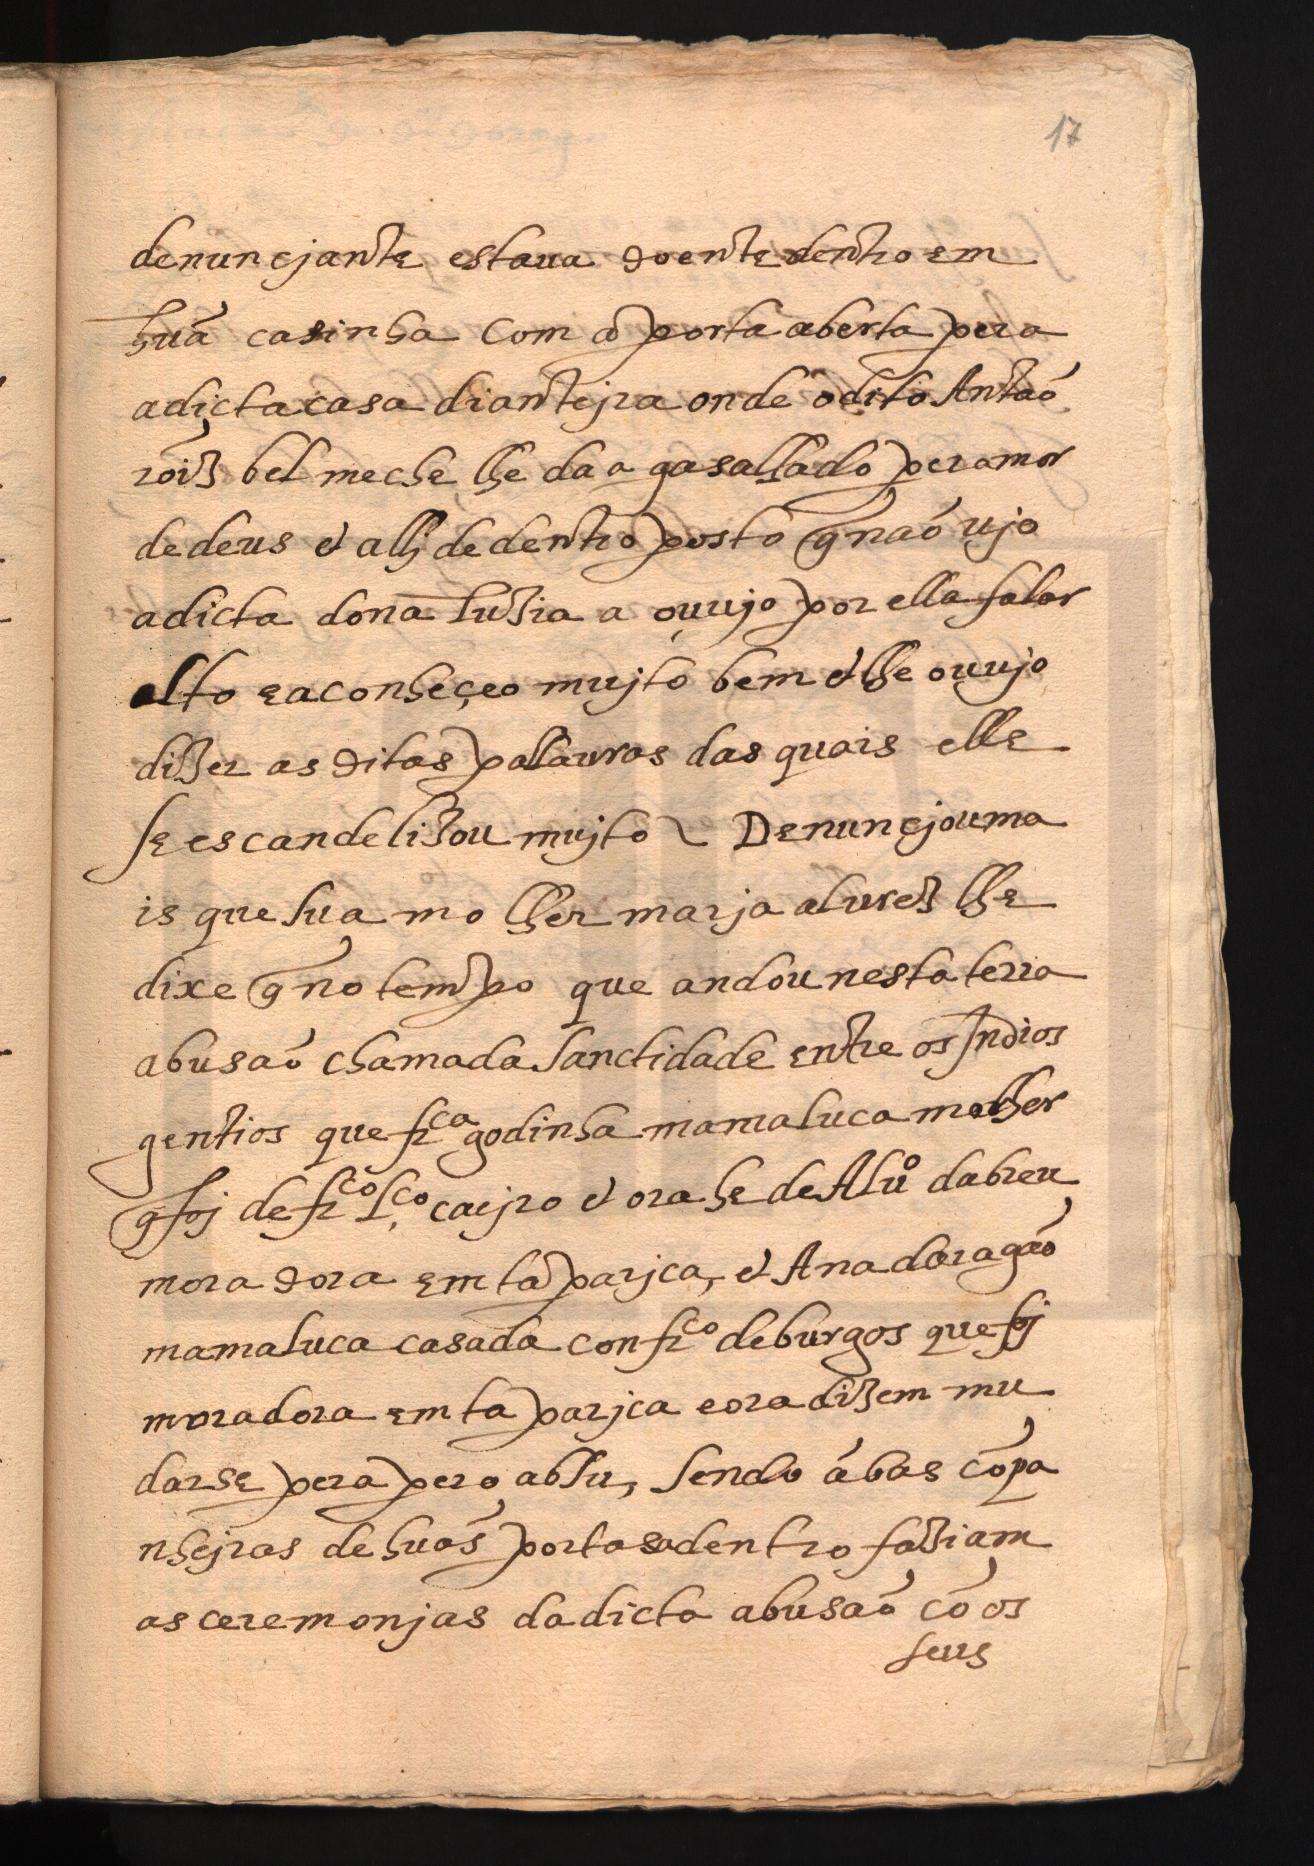 17
denunçjante estaua doente dentro em
huã casinha Com a porta aberta pera
a dicta casa diantejra onde o dito Antaõ
roĩz bel meche lhe da a gasallado per amor
de deus e alj de dentro posto q̃ naõ ujo
a dicta dona luzia a ouujo por ella falar
alto e a conheçeo mujto bem e lhe ouujo
dizer as ditas pallauras das quais elle
se escandelizou mujto ~ Denunçjou ma
is que sua molher marja alurez lhe
dixe q̃ no tempo que andou nesta terra
abusaõ chamada Sanctidade entre os Indios
gentios que frca godinha mamaluca molher
q̃ foj de frco lço caejro e ora he de Aluo dabreu
moradora em taparjca, e Ana daragaõ
mamaluca casada con frco de burgos que foj
moradora em taparjca e ora dizem mu
darse pera pero absu, Sendo ábas cõpa
nhejras de huãs portas a dentro faziam
as ceremonjas da dicta abusaõ cõ os
seus